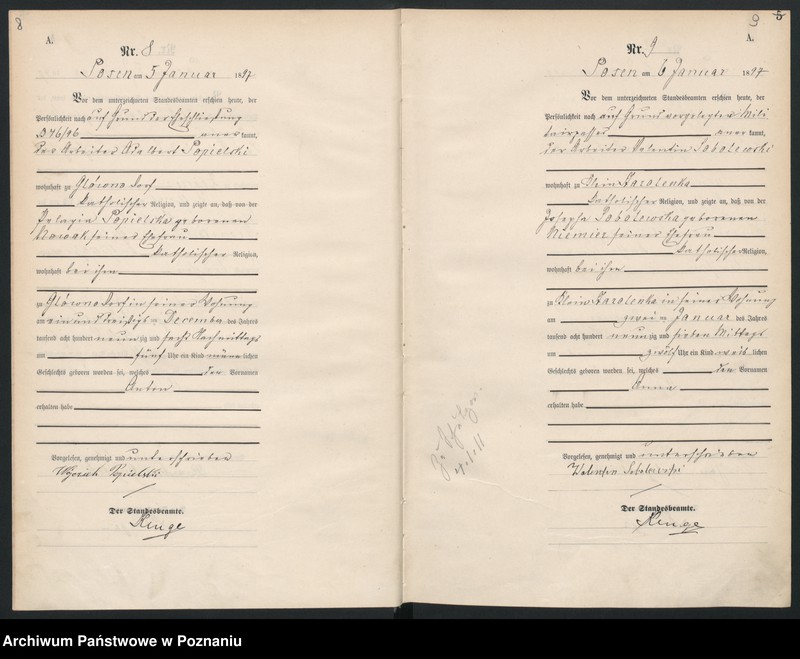 8
A.
Nr. 8
Posen am 5 Januar 1897
Vor dem unterzeichneten Standesbeamten erschien heute, der
Persönlichkeit nach auf Grund der Eheschließung
B 76/96 anerkannt,
der Arbeiter Adalbert Popielski
wohnhaft zu Glówno Dorf
katholischer Religion, und zeigte an, daß von der
Pelagia Popielska geborenen
Nowak seiner Ehefrau
katholischer Religion,
wohnhaft bei ihm
zu Glówno Dorf in seiner Wohnung
am ein und dreißigsten Dezember des Jahres
tausend acht hundert neunzig und sechs Nachmittags
um fünf Uhr ein Kind männlichen
Geschlechts geboren worden sei, welches den Vornamen
Anton
erhalten habe
Vorgelesen, genehmigt und unterschrieben
Der Standesbeamte.
9 5
A.
Nr. 9
Posen am 6 Januar 1897
Vor dem unterzeichneten Standesbeamten erschien heute, der
Persönlichkeit nach auf Grund vorgelegten Mili
tairpasses anerkannt,
der Arbeiter Valentin Sobolewski
wohnhaft zu Klein Karolenka
katholischer Religion, und zeigte an, daß von der
Josepha Sobolewska geborenen
Niemier seiner Ehefrau
katholischer Religion,
wohnhaft bei ihm
zu Klein Karolenka in seiner Wohnung
am zweiten Januar des Jahres
tausend acht hundert neunzig und sieben Mittags
um zwölf Uhr ein Kind weiblichen
Geschlechts geboren worden sei, welches den Vornamen
Anna
erhalten habe
Vorgelesen, genehmigt und unterschrieben
Der Standesbeamte.
Archiwum Państwowe w Poznaniu